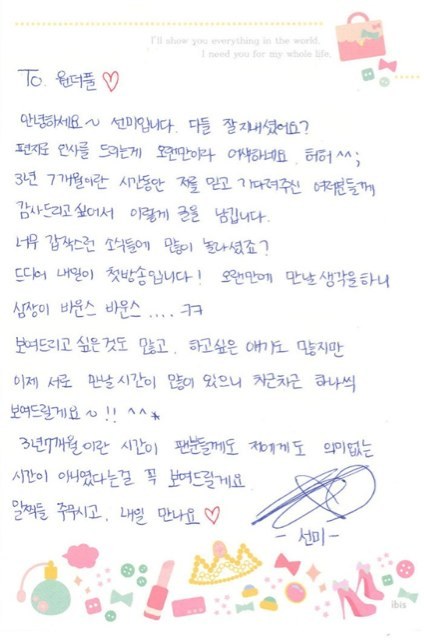 I'll show you everything in the world.
I need you for my whole life.
To. 원더풀♡
안녕하세요~ 선미입니다. 다들 잘 지내셨어요?
편지로 인사를 드리는게 오랜만이라 어색하네요. 허허 ^^;
3년 7개월이란 시간동안 저를 믿고 기다려주신 여러분들께
감사드리고 싶어서 이렇게 글을 남깁니다.
너무 갑작스런 소식들에 많이 놀라셨죠?
드디어 내일이 첫방송입니다! 오랜만에 만날 생각을 하니
심장이 바운스 바운스 .... ㅋㅋ
보여드리고 싶은것도 많고, 하고싶은 얘기도 많지만
이제 서로 만날 시간이 많이 있으니 차근차근 하나씩
보여드릴게요~!! ^^*
3년7개월이란 시간이 팬분들께도 저에게도 의미없는
시간이 아니였다는걸 꼭 보여드릴게요.
일찍들 주무시고, 내일 만나요♡
- 선미 -
ibis